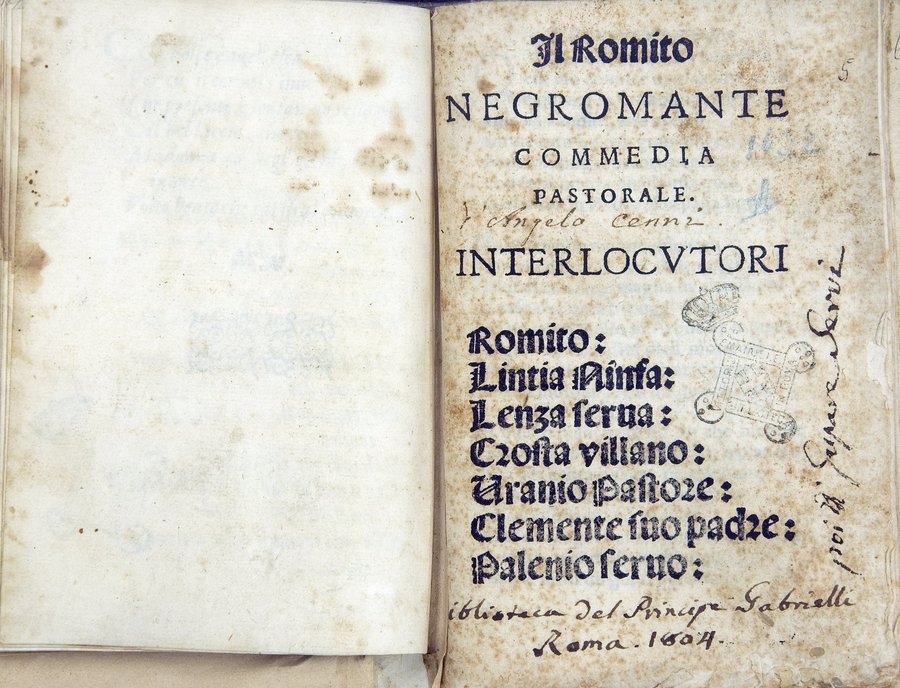 Il Romito
NEGROMANTE
COMMEDIA
PASTORALE.
Angelo Cenni.
INTERLOCVTORI
Romito:
Lintia Ninfa:
Lenza serua:
Crosta villano:
Uranio Pastore:
Clemente suo padre:
Palenio seruo:
iblioteca del Principe Gabrielli
Roma. 1804.
5